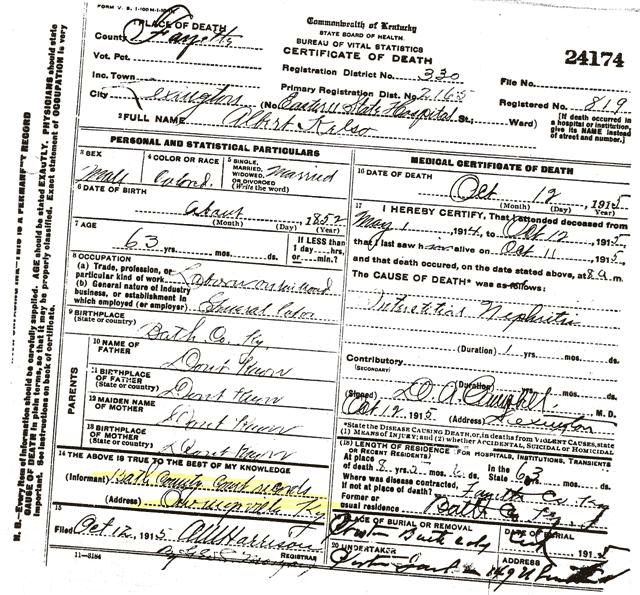 FORM V. S. 1-100M-1-
1 PLACE OF DEATH
County Fayette
Vot. Pct.
Inc. Town
City Lexington (No. Eastern State Hospital St.; Ward)
Commonwealth of Kentucky
STATE BOARD OF HEALTH.
BUREAU OF VITAL STATISTICS
CERTIFICATE OF DEATH
Registration District No. 330
Primary Registration Dist. No. 2165
24174
File No.
Registered No. 819
[If death occurred in a hospital or institution, give its NAME instead of street and number.]
2 FULL NAME Albert Kelso
PERSONAL AND STATISTICAL PARTICULARS
3 SEX Male
4 COLOR OR RACE Colored
5 SINGLE, MARRIED, WIDOWED, OR DIVORCED (Write the word) Married
6 DATE OF BIRTH
about 1852
(Month) (Day) (Year)
7 AGE
63 yrs. mos. ds.
If LESS than 1 day, hrs. or min.?
8 OCCUPATION
(a) Trade, profession, or particular kind of work
(b) General nature of industry business, or establishment in which employed (or employer) General labor
9 BIRTHPLACE (State or country) Bath Co. Ky.
PARENTS
10 NAME OF FATHER Dont Know
11 BIRTHPLACE OF FATHER (State or country) Dont Know
12 MAIDEN NAME OF MOTHER Dont Know
13 BIRTHPLACE OF MOTHER (State or country) Dont Know
14 THE ABOVE IS TRUE TO THE BEST OF MY KNOWLEDGE
(Informant) Bath County Court records
(Address) Owingsville Ky
15
Filed Oct 12, 1915 Harrison
REGISTRAR
11-3184
MEDICAL CERTIFICATE OF DEATH
16 DATE OF DEATH
Oct 12, 1915
(Month) (Day) (Year)
17 I HEREBY CERTIFY, That I attended deceased from
May 1 1914, to Oct 12 1915
that I last saw h alive on Oct 11 1915,
and that death occurred, on the date stated above, at 8 a m.
The CAUSE OF DEATH* was as follows:
Interstitial Nephritis
(Duration) 1 yrs. mos. ds.
Contributory
(SECONDARY)
(Duration) yrs. mos. ds.
(Signed) M. D.
Oct 12 1915 (Address) Lexington
*State the DISEASE CAUSING DEATH, or, in deaths from VIOLENT CAUSES, state (1) MEANS OF INJURY; and (2) whether ACCIDENTAL, SUICIDAL or HOMICIDAL
(18) LENGTH OF RESIDENCE (FOR HOSPITALS, INSTITUTIONS, TRANSIENTS OR RECENT RESIDENTS)
At place of death yrs. mos. ds. In the State 63
Where was disease contracted, If not at place of death? Fayette Co. Ky
Former or usual residence Bath Co. Ky.
19 PLACE OF BURIAL OR REMOVAL
DATE OF BURIAL
1915
20 UNDERTAKER
ADDRESS
N. B.—Every Item of information should be carefully supplied. AGE should be stated EXACTLY. PHYSICIANS should state
CAUSE OF DEATH in plain terms, so that it may be properly classified. Exact statement of OCCUPATION is very
important. See instructions on back of certificate.